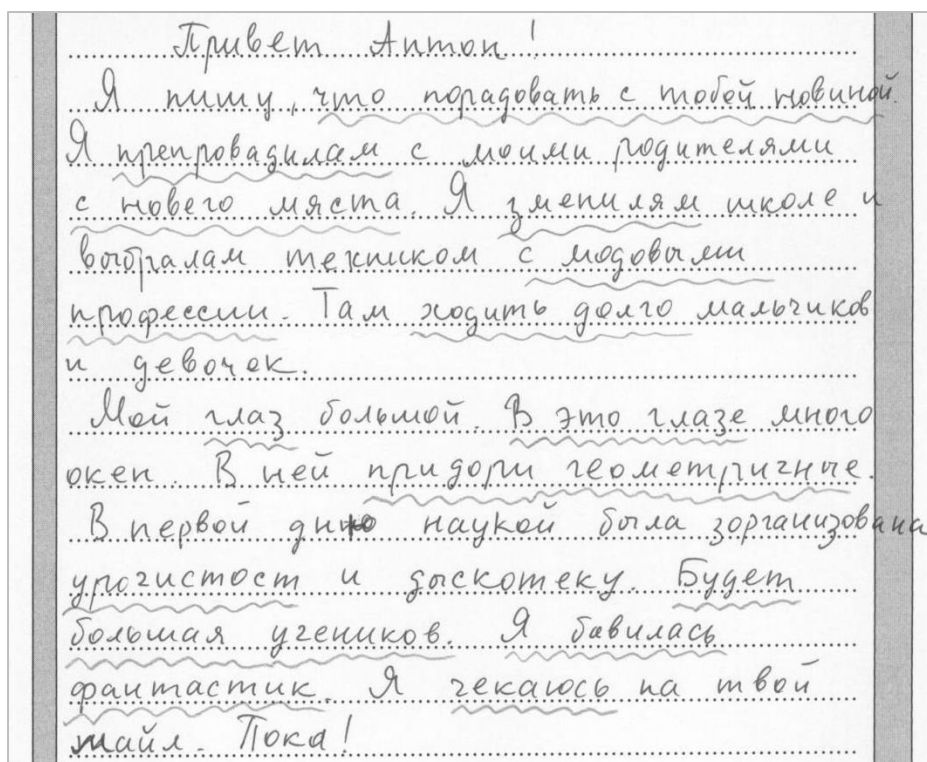 Привет Антон!
Я пишу, что порадовать с тобой новиной.
Я препровадилам с моими родителями
с новего мяста. Я зменилям школе и
выбралам техником с модовыми
профессии. Там ходить долго мальчиков
и девочек.
Мой глаз большой. В это глазе много
окен. В ней придори геометричные.
В первой дню наукой была зорганизована
урочистост и дыскотеку. Будет
большая учеников. Я бавилась
фантастик. Я чекаюсь на твой
майл. Пока!